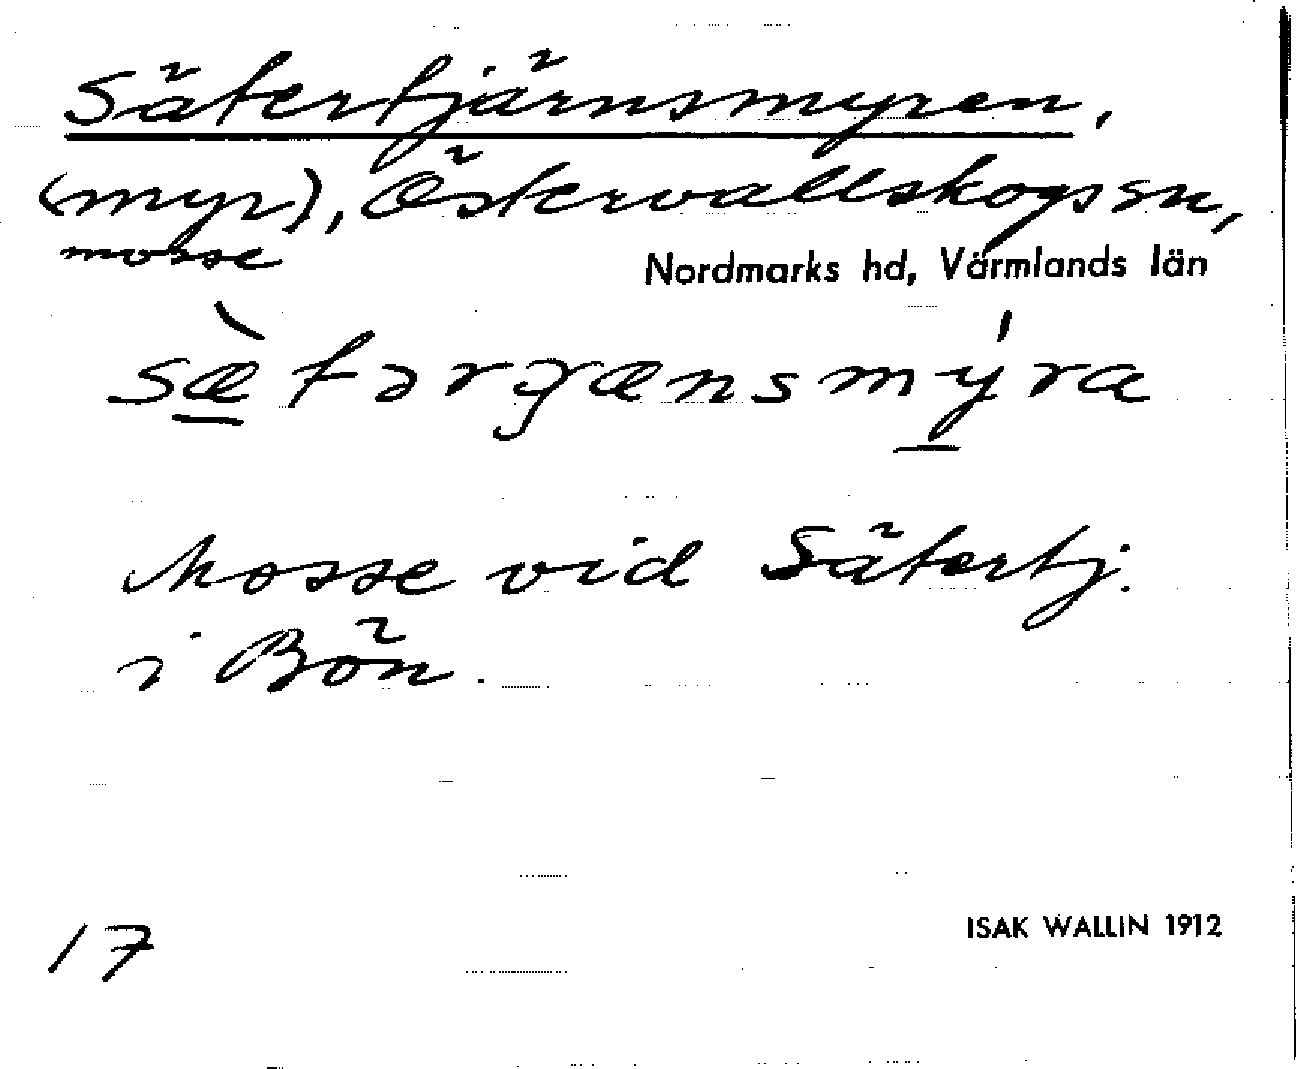 Sätertjärnsmyren,
(myr), Östervallskogs sn,
mosse
Nordmarks hd, Värmlands län
sæ̀tərjænsmýra
Mosse vid Sätertj.
i Bön.
17
ISAK WALLIN 1912